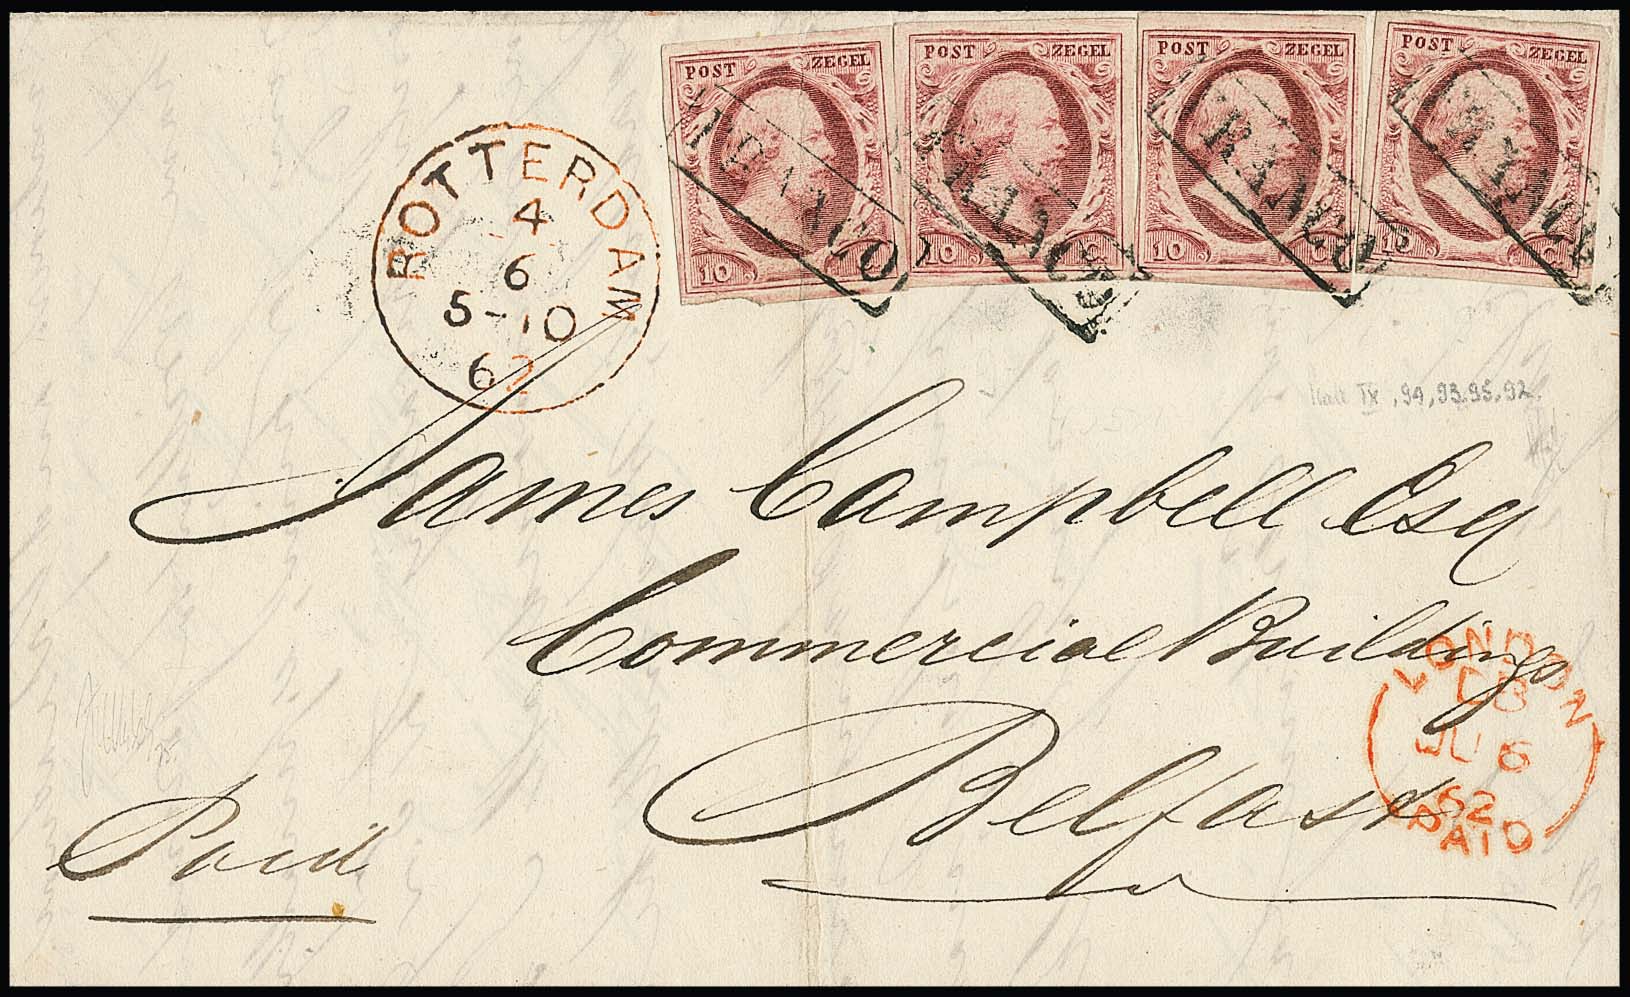 POST ZEGEL
10 C
FRANCO
POST ZEGEL
10 C
FRANCO
POST ZEGEL
10 C
FRANCO
POST ZEGEL
10
FRANCO
ROTTERDAM
4
6
5-10
62
94, 93, 95, 92.
James Campbell Esq
Commercial Buildings
Belfast
LONDON
JU 6
62
PAID
Paid